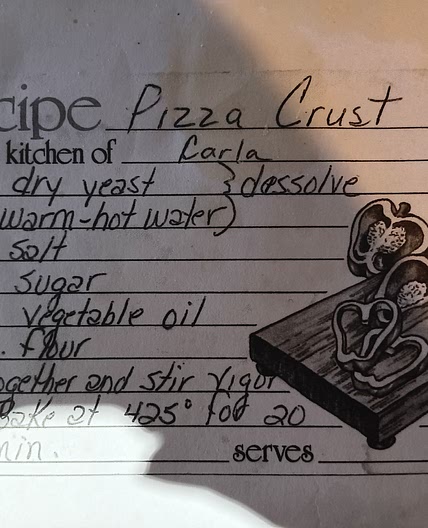 cipe Pizza Crust
kitchen of Carla
dry yeast } dessolve
warm-hot water)
salt
sugar
vegetable oil
. flour
ogether and stir vigor
Bake at 425° for 20
min.
serves